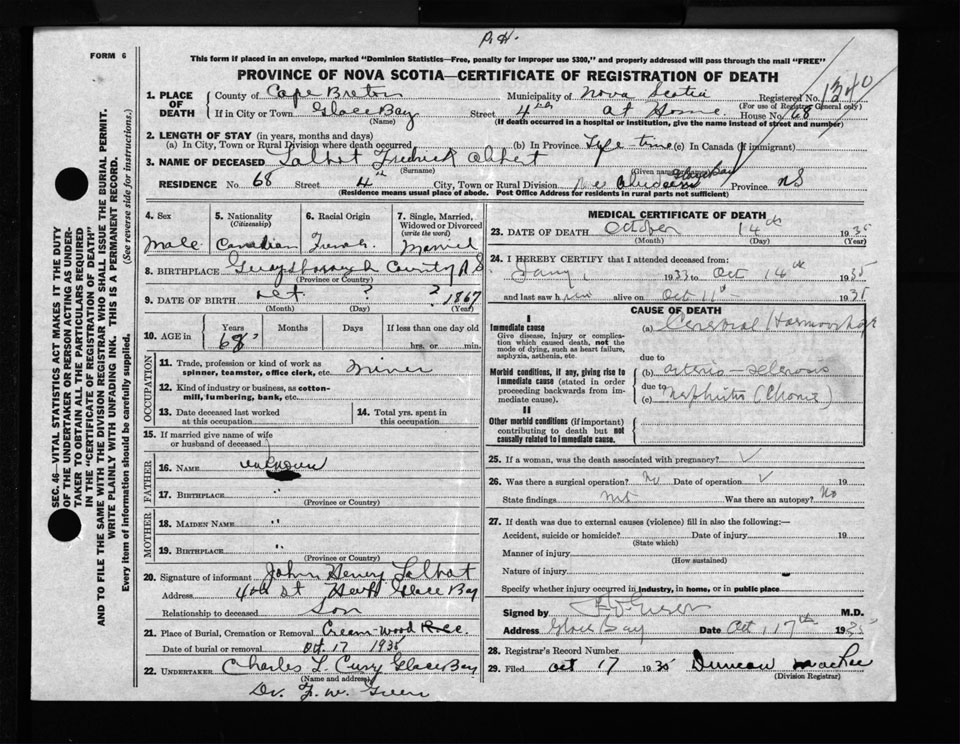 P.H.
FORM 6
This form if placed in an envelope, marked "Dominion Statistics—Free, penalty for improper use $300," and properly addressed will pass through the mail "FREE"
PROVINCE OF NOVA SCOTIA—CERTIFICATE OF REGISTRATION OF DEATH
SEC. 46—VITAL STATISTICS ACT MAKES IT THE DUTY
OF THE UNDERTAKER OR PERSON ACTING AS UNDER-
TAKER TO OBTAIN ALL THE PARTICULARS REQUIRED
IN THE "CERTIFICATE OF REGISTRATION OF DEATH"
AND TO FILE THE SAME WITH THE DIVISION REGISTRAR WHO SHALL ISSUE THE BURIAL PERMIT.
WRITE PLAINLY WITH UNFADING INK. THIS IS A PERMANENT RECORD.
Every item of information should be carefully supplied. (See reverse side for instructions.)
1. PLACE OF DEATH
County of Cape Breton Municipality of Nova Scotia Registered No. 1340
(For use of Registrar General only)
If in City or Town Glace Bay Street 4th at Home House No. 68
(Name) (If death occurred in a hospital or institution, give the name instead of street and number)
2. LENGTH OF STAY (in years, months and days)
(a) In City, Town or Rural Division where death occurred (b) In Province Life-time (c) In Canada (if immigrant)
3. NAME OF DECEASED Talbot Fredrick Albert
(Surname) (Given name or names)
RESIDENCE No. 68 Street 4th City, Town or Rural Division Glace Bay Province NS
(Residence means usual place of abode. Post Office Address for residents in rural parts not sufficient)
4. Sex
Male
5. Nationality
(Citizenship)
Canadian
6. Racial Origin
French
7. Single, Married, Widowed or Divorced
(write the word)
Married
8. BIRTHPLACE Guysborough County N.S.
(Province or Country)
9. DATE OF BIRTH ? ? 1867
(Month) (Day) (Year)
10. AGE in
Years Months Days If less than one day old
68 hrs. or min.
OCCUPATION
11. Trade, profession or kind of work as
spinner, teamster, office clerk, etc. Miner
12. Kind of industry or business, as cotton-
mill, lumbering, bank, etc.
13. Date deceased last worked
at this occupation
14. Total yrs. spent in
this occupation
15. If married give name of wife
or husband of deceased
FATHER
16. NAME unknown
17. BIRTHPLACE "
(Province or Country)
MOTHER
18. MAIDEN NAME "
19. BIRTHPLACE "
(Province or Country)
20. Signature of informant John Henry Talbot
Address 4th St Glace Bay
Relationship to deceased Son
21. Place of Burial, Cremation or Removal
Date of burial or removal Oct. 17 1935
22. UNDERTAKER Charles L. Curry Glace Bay
(Name and address)
Dr. F. W. Green
MEDICAL CERTIFICATE OF DEATH
23. DATE OF DEATH October 14th 1935
(Month) (Day) (Year)
24. I HEREBY CERTIFY that I attended deceased from:
Jany 1 1933 to Oct 14th 1935
and last saw him alive on Oct 11th 1935
CAUSE OF DEATH
I
Immediate cause
Give disease, injury or complica-
tion which caused death, not the
mode of dying, such as heart failure,
asphyxia, asthenia, etc.
(a) Cerebral Haemorrhage
due to
Morbid conditions, if any, giving rise to
immediate cause (stated in order
proceeding backwards from im-
mediate cause).
(b) arterio-sclerosis
due to
(c) Nephritis (Chronic)
II
Other morbid conditions (if important)
contributing to death but not
causally related to immediate cause.
25. If a woman, was the death associated with pregnancy?
26. Was there a surgical operation? No Date of operation 19
State findings Was there an autopsy? No
27. If death was due to external causes (violence) fill in also the following:—
Accident, suicide or homicide? Date of injury 19
(State which)
Manner of injury
(How sustained)
Nature of injury
Specify whether injury occurred in industry, in home, or in public place
Signed by M.D.
Address Glace Bay Date Oct 17th 1935
28. Registrar's Record Number
29. Filed Oct 17 1935 Duncan MacRae
(Division Registrar)